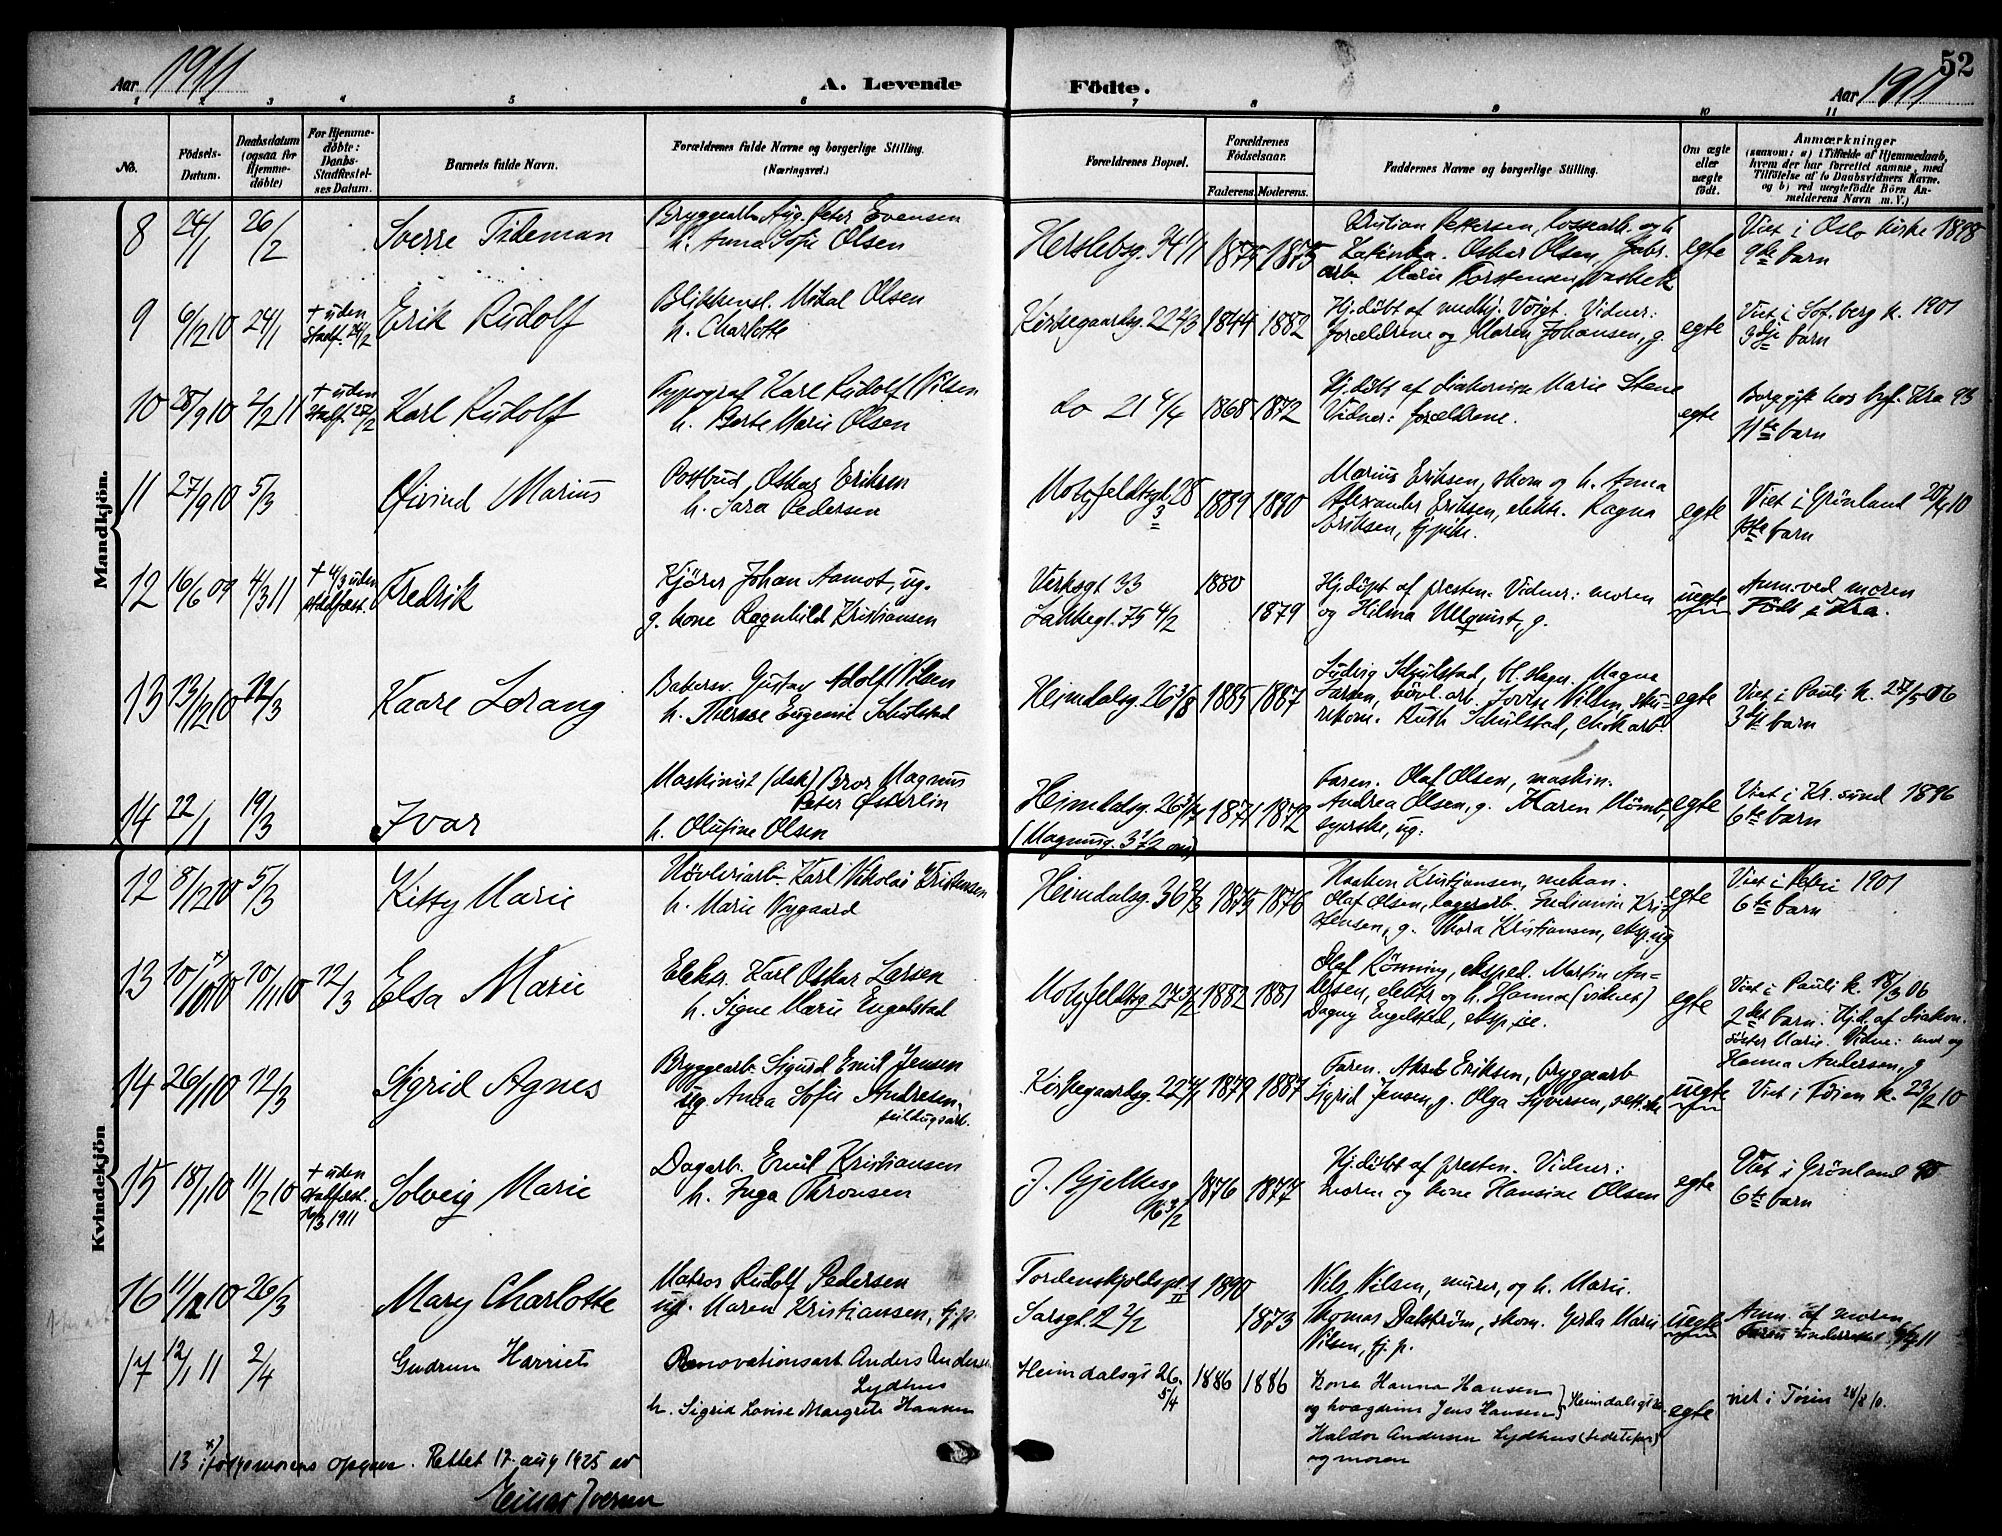 52
Aar 1911
A. Levende
Födte.
Aar 1911
1 2 3 4 5 6 7 8 9 10 11
No.
Födsels-Datum.
Daabsdatum (ogsaa for Hjemme-döbte)
For Hjemme-döbte: Daabs-Stadfæstel-ses Datum.
Barnets fulde Navn.
Forældrenes fulde Navne og borgerlige Stilling. (Næringsvei.)
Forældrenes Bopæl.
Forældrenes Födselsaar.
Faderens. Moderens.
Faddernes Navne og borgerlige Stilling.
Om ægte eller uægte födt.
Anmærkninger
(saasom: a) i Tilfælde af Hjemmedaab, hvem der har forrettet samme, med Tilföielse af to Daabsvidners Navne, og b) ved uægtefödte Börn An-melderens Navn m. V.)
Mandkjön.
8 24/1 26/2 Sverre Tideman
Bryggearb. Aug. Peter Evensen
h. Anna Sofie Olsen
Herslebsg. 34 1875 1875
Kristian Pettersen,
Oskar Olsen, Fabr.
arb. Marie Torstensen
egte
Viet i Oslo kirke 1898
9de barn
9 6/12 10 24/1 + uden Stadf. 24/2 Erik Rudolf
Blikkensl. Mikal Olsen
h. Charlotte
Kirkegaardsg. 22 2/3 1844 1882
Hj.døbt af medhj. Voigt. Vidner:
forældrene og Maren Johansen, g.
egte
Viet i Sof.berg k. 1901
3dje barn
10 28/9 10 2/2 11 + uden Stadf. 27/2 Karl Rudolf
Typograf Karl Rudolf Nilsen
h. Berte Marie Olsen
do 21 4/4 1868 1872
Hj.døbt af diakonisse Marie Stene
Vidner: forældrene.
egte
Borggift hos byf. Kra 93
11te barn
11 27/9 10 5/3 Øivind Marius
Postbud Oskar Eriksen
h. Sara Pedersen
Motzfeldtsgd 28 3 1889 1890
Marius Eriksen, skom og h. Anna
Alexander Eriksen, elektr. Ragna
Eriksen, tj.pike.
egte
Viet i Grønland 20/4 10
1ste barn
12 16/6 09 4/3 11 + 4/3 uden stadfæst. Fredrik
Kjører Johan Aamot, ug.
g. kone Ragnhild Kristiansen
Verksgt 33 1880
Lakkegt. 75 4/2 1879
Hj.døpt af presten. Vidner: moren
og Hilma Ullquist, g.
uegte
Anm. ved moren
Født i Kra.
13 13/12 10 12/3 Kaare Lorang
Bakersv. Gustav Adolf Nilsen
h. Therese Eugenie Schulstad
Heimdalsg. 26 3/8 1885 1887
Ludvig Schulstad, Magna
Larsen, Nilsen,
Ruth Schulstad,
egte
Viet i Pauli k. 27/5 06
3dje barn
14 22/1 19/3 Ivar
Maskinist (dsk) Bror Magnus
Peter Østerlin
h. Olufine Olsen
Heimdalsg. 26 3/7 1871 1872
Faren. Olaf Olsen, maskin.
Andrea Olsen, g. Karen
syerske, ug.
egte
Viet i Kr.sund 1896
6te barn
Kvindekjön
12 8/12 10 5/3 Kitty Marie
Høvleriarb. Karl Nikolai Kristensen
h. Marie Nygaard
Heimdalsg. 36 2/3 1875 1876
Haakon Kristiansen, mekan.
Olaf Olsen, lagerarb.
g. Thora Kristiansen, eksp. ug
egte
Viet i Petri 1901
6te barn
13 10/10 10 x) 20/11 10 12/3 Elsa Marie
Elektr. Karl Oskar Larsen
h. Signe Marie Engelstad
Motzfeldtsg. 27 3/2 1882 1881
Olaf Rønning, eksped. Martin An-
dersen, elektr og h. Hanna (vidnet)
Dagny Engelstad,
egte
Viet i Pauli k. 18/3 06
2det barn. Hj.d. af diakon.
søster Marie. Vidne: mor og
Hanna Andersen, g
14 26/1 10 12/3 Sigrid Agnes
Bryggearb. Sigurd Emil Jensen
ug. Anna Sofie Andresen,
seildugsarb.
Kirkegaardsg. 22 4/1 1879 1887
Faren. Aksel Eriksen, bryggearb
Sigrid Jensen, g. Olga Syversen,
uegte
Viet i Tøien k. 23/2 10
15 18/1 10 11/2 10 + uden stadfæst. 1911 Solveig Marie
Dagarb. Emil Kristiansen
h. Inga Thronsen
J. Bjelkesg 16 3/2 1876 1877
Hj.døbt af presten. Vidner:
moren og kone Hansine Olsen
egte
Viet i Grønland 95
6te barn
16 11/12 10 26/3 Mary Charlotte
Matros Rudolf Pedersen
ug. Maren Kristiansen, tj.p.
Tordenskjoldspl 1 1890
Sarsgt. 2 2/2 1873
Nils Nilsen, murer, og h. Marie.
Thomas Dalstrøm, skom. Gerda Marie
Nilsen, tj.p.
uegte
Anm. af moren
17 12/1 11 2/4 Gudrun Harriet
Renovationsarb Anders Andersen
Lydhus
h. Sigrid Lovise Margrete Hansen
Heimdalsgt 26. 5/4 1886 1886
Kone Hanna Hansen
og Jens Hansen } Heimdalsgt
Haldor Andersen Lydhus
og moren
egte
viet i Tøien 28/8 10.
13 x) ifølge morens opgave. Rettet 17. aug 1925 av
Einar Iversen